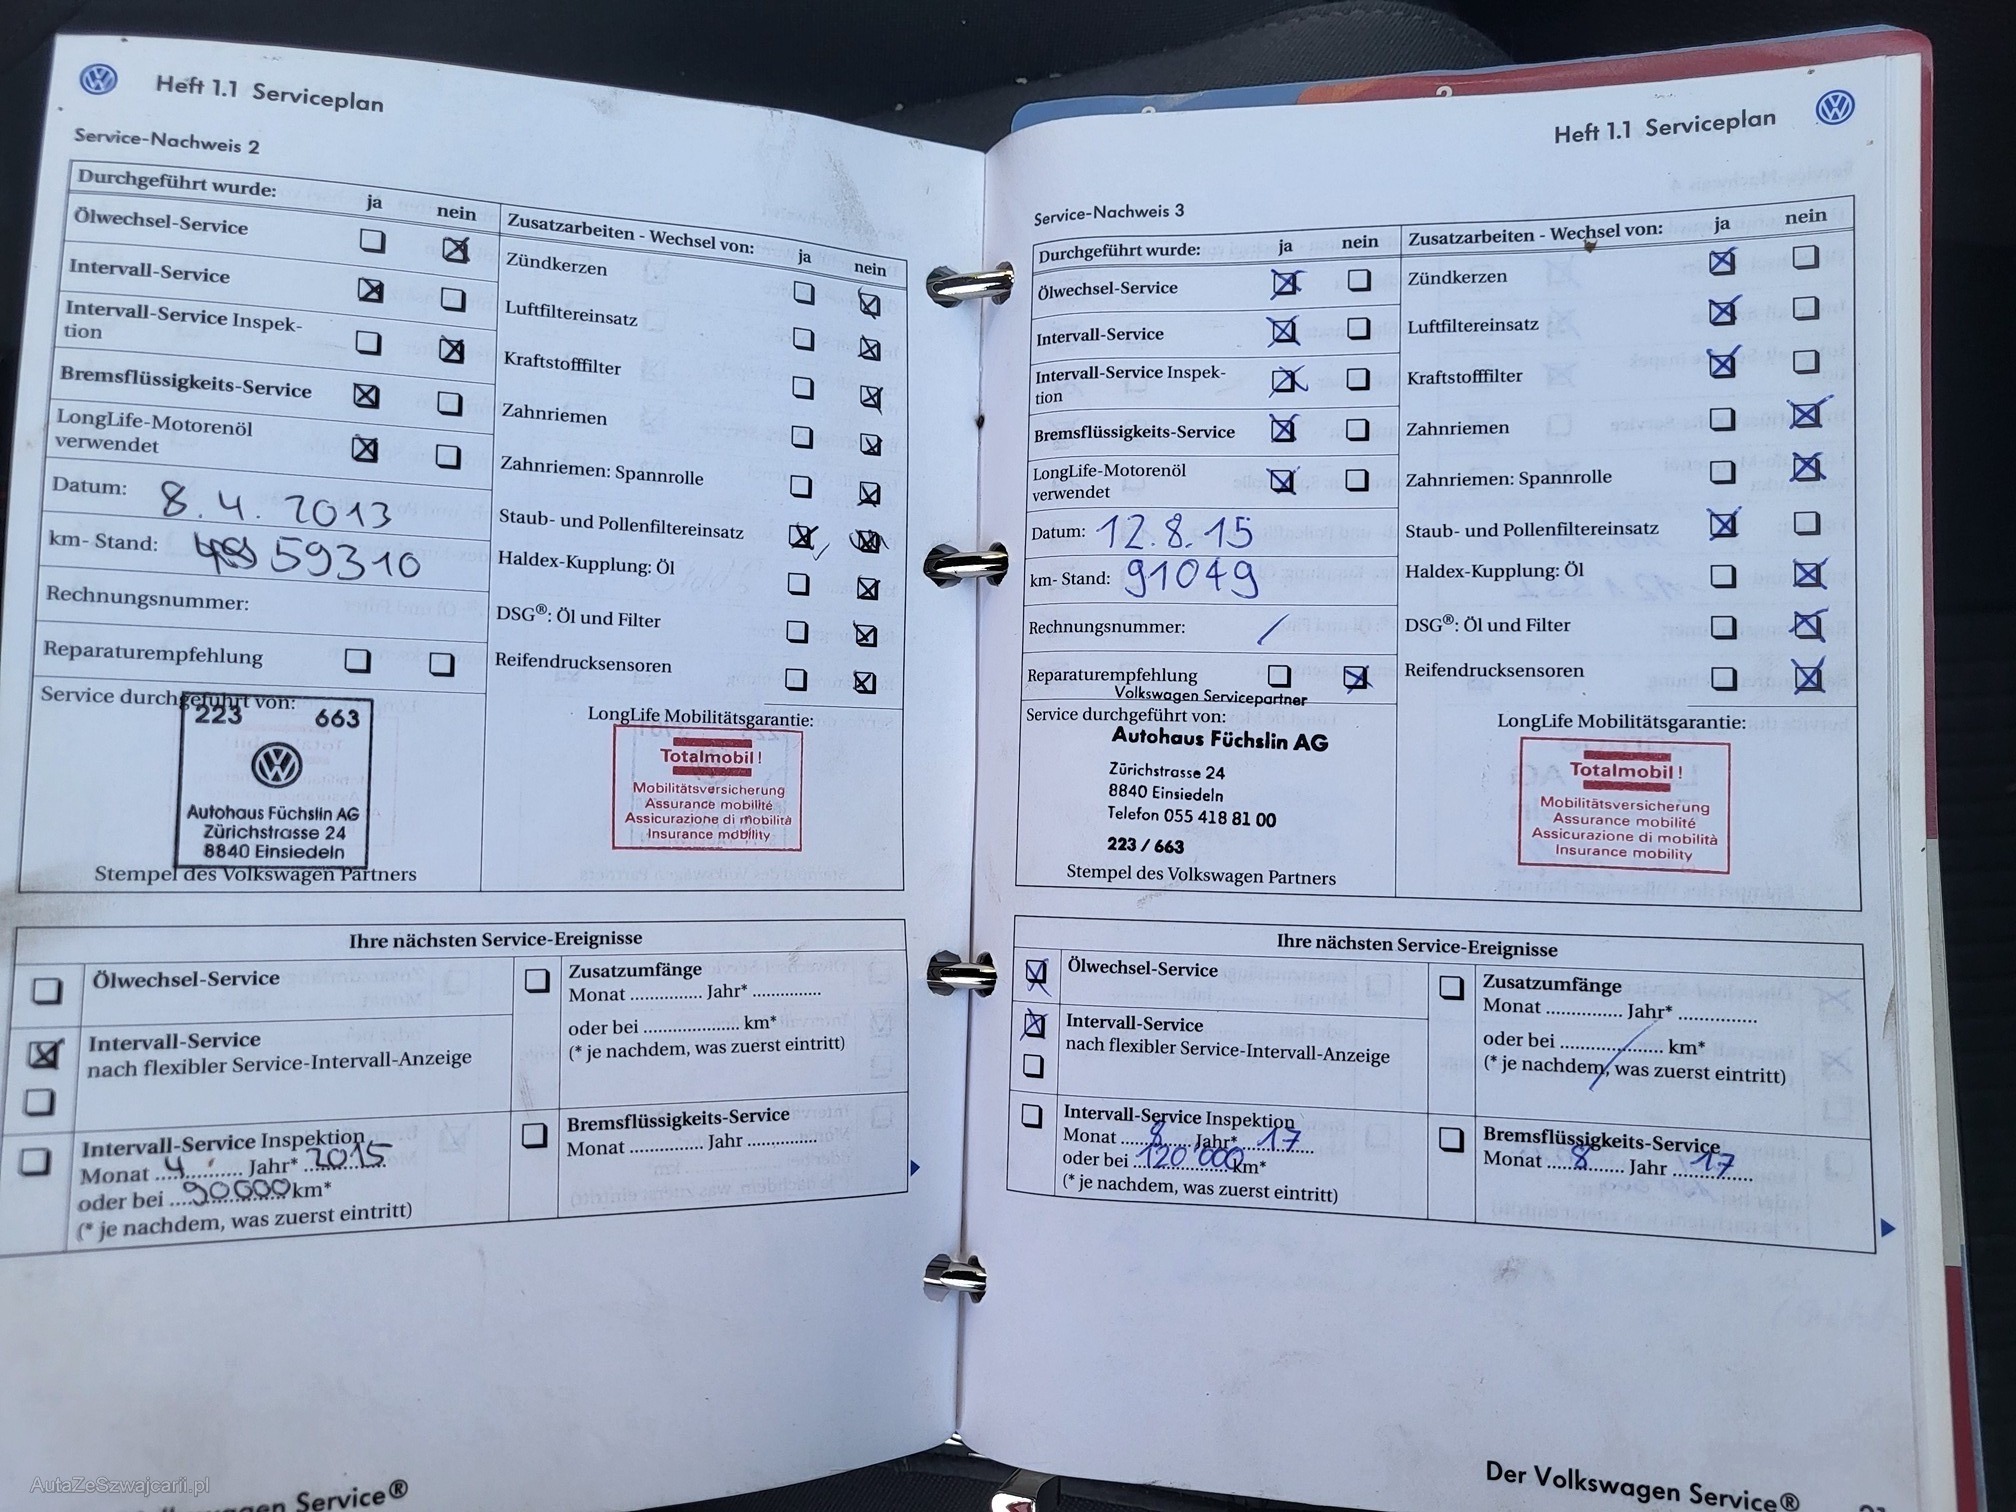 Heft 1.1 Serviceplan
Service-Nachweis 2
Durchgeführt wurde:
ja
nein
Ölwechsel-Service
Intervall-Service
Intervall-Service Inspek-
tion
Bremsflüssigkeits-Service
LongLife-Motorenöl
verwendet
Datum: 8.4.2013
km-Stand: 59310
Rechnungsnummer:
Reparaturempfehlung
Service durchgeführt von:
223 663
Autohaus Füchslin AG
Zürichstrasse 24
8840 Einsiedeln
Stempel des Volkswagen Partners
Zusatzarbeiten - Wechsel von:
ja
nein
Zündkerzen
Luftfiltereinsatz
Kraftstofffilter
Zahnriemen
Zahnriemen: Spannrolle
Staub- und Pollenfiltereinsatz
Haldex-Kupplung: Öl
DSG®: Öl und Filter
Reifendrucksensoren
LongLife Mobilitätsgarantie:
Totalmobil!
Mobilitätsversicherung
Assurance mobilité
Assicurazione di mobilità
Insurance mobility
Ihre nächsten Service-Ereignisse
Ölwechsel-Service
Intervall-Service
nach flexibler Service-Intervall-Anzeige
Intervall-Service Inspektion
Monat 4 Jahr* 2015
oder bei 90000 km*
(* je nachdem, was zuerst eintritt)
Zusatzumfänge
Monat .............. Jahr* ..............
oder bei .................... km*
(* je nachdem, was zuerst eintritt)
Bremsflüssigkeits-Service
Monat .............. Jahr ..............
AutaZeSzwajcarii.pl
gen Service®
Heft 1.1 Serviceplan
Service-Nachweis 3
Durchgeführt wurde:
ja
nein
Ölwechsel-Service
Intervall-Service
Intervall-Service Inspek-
tion
Bremsflüssigkeits-Service
LongLife-Motorenöl
verwendet
Datum: 12.8.15
km-Stand: 91049
Rechnungsnummer: /
Reparaturempfehlung
Volkswagen Servicepartner
Service durchgeführt von:
Autohaus Füchslin AG
Zürichstrasse 24
8840 Einsiedeln
Telefon 055 418 81 00
223 / 663
Stempel des Volkswagen Partners
Zusatzarbeiten - Wechsel von:
ja
nein
Zündkerzen
Luftfiltereinsatz
Kraftstofffilter
Zahnriemen
Zahnriemen: Spannrolle
Staub- und Pollenfiltereinsatz
Haldex-Kupplung: Öl
DSG®: Öl und Filter
Reifendrucksensoren
LongLife Mobilitätsgarantie:
Totalmobil!
Mobilitätsversicherung
Assurance mobilité
Assicurazione di mobilità
Insurance mobility
Ihre nächsten Service-Ereignisse
Ölwechsel-Service
Intervall-Service
nach flexibler Service-Intervall-Anzeige
Intervall-Service Inspektion
Monat 8 Jahr* 17
oder bei 120'000 km*
(* je nachdem, was zuerst eintritt)
Zusatzumfänge
Monat .............. Jahr* ..............
oder bei .................... km*
(* je nachdem, was zuerst eintritt)
Bremsflüssigkeits-Service
Monat 8 Jahr 17
Der Volkswagen Service®